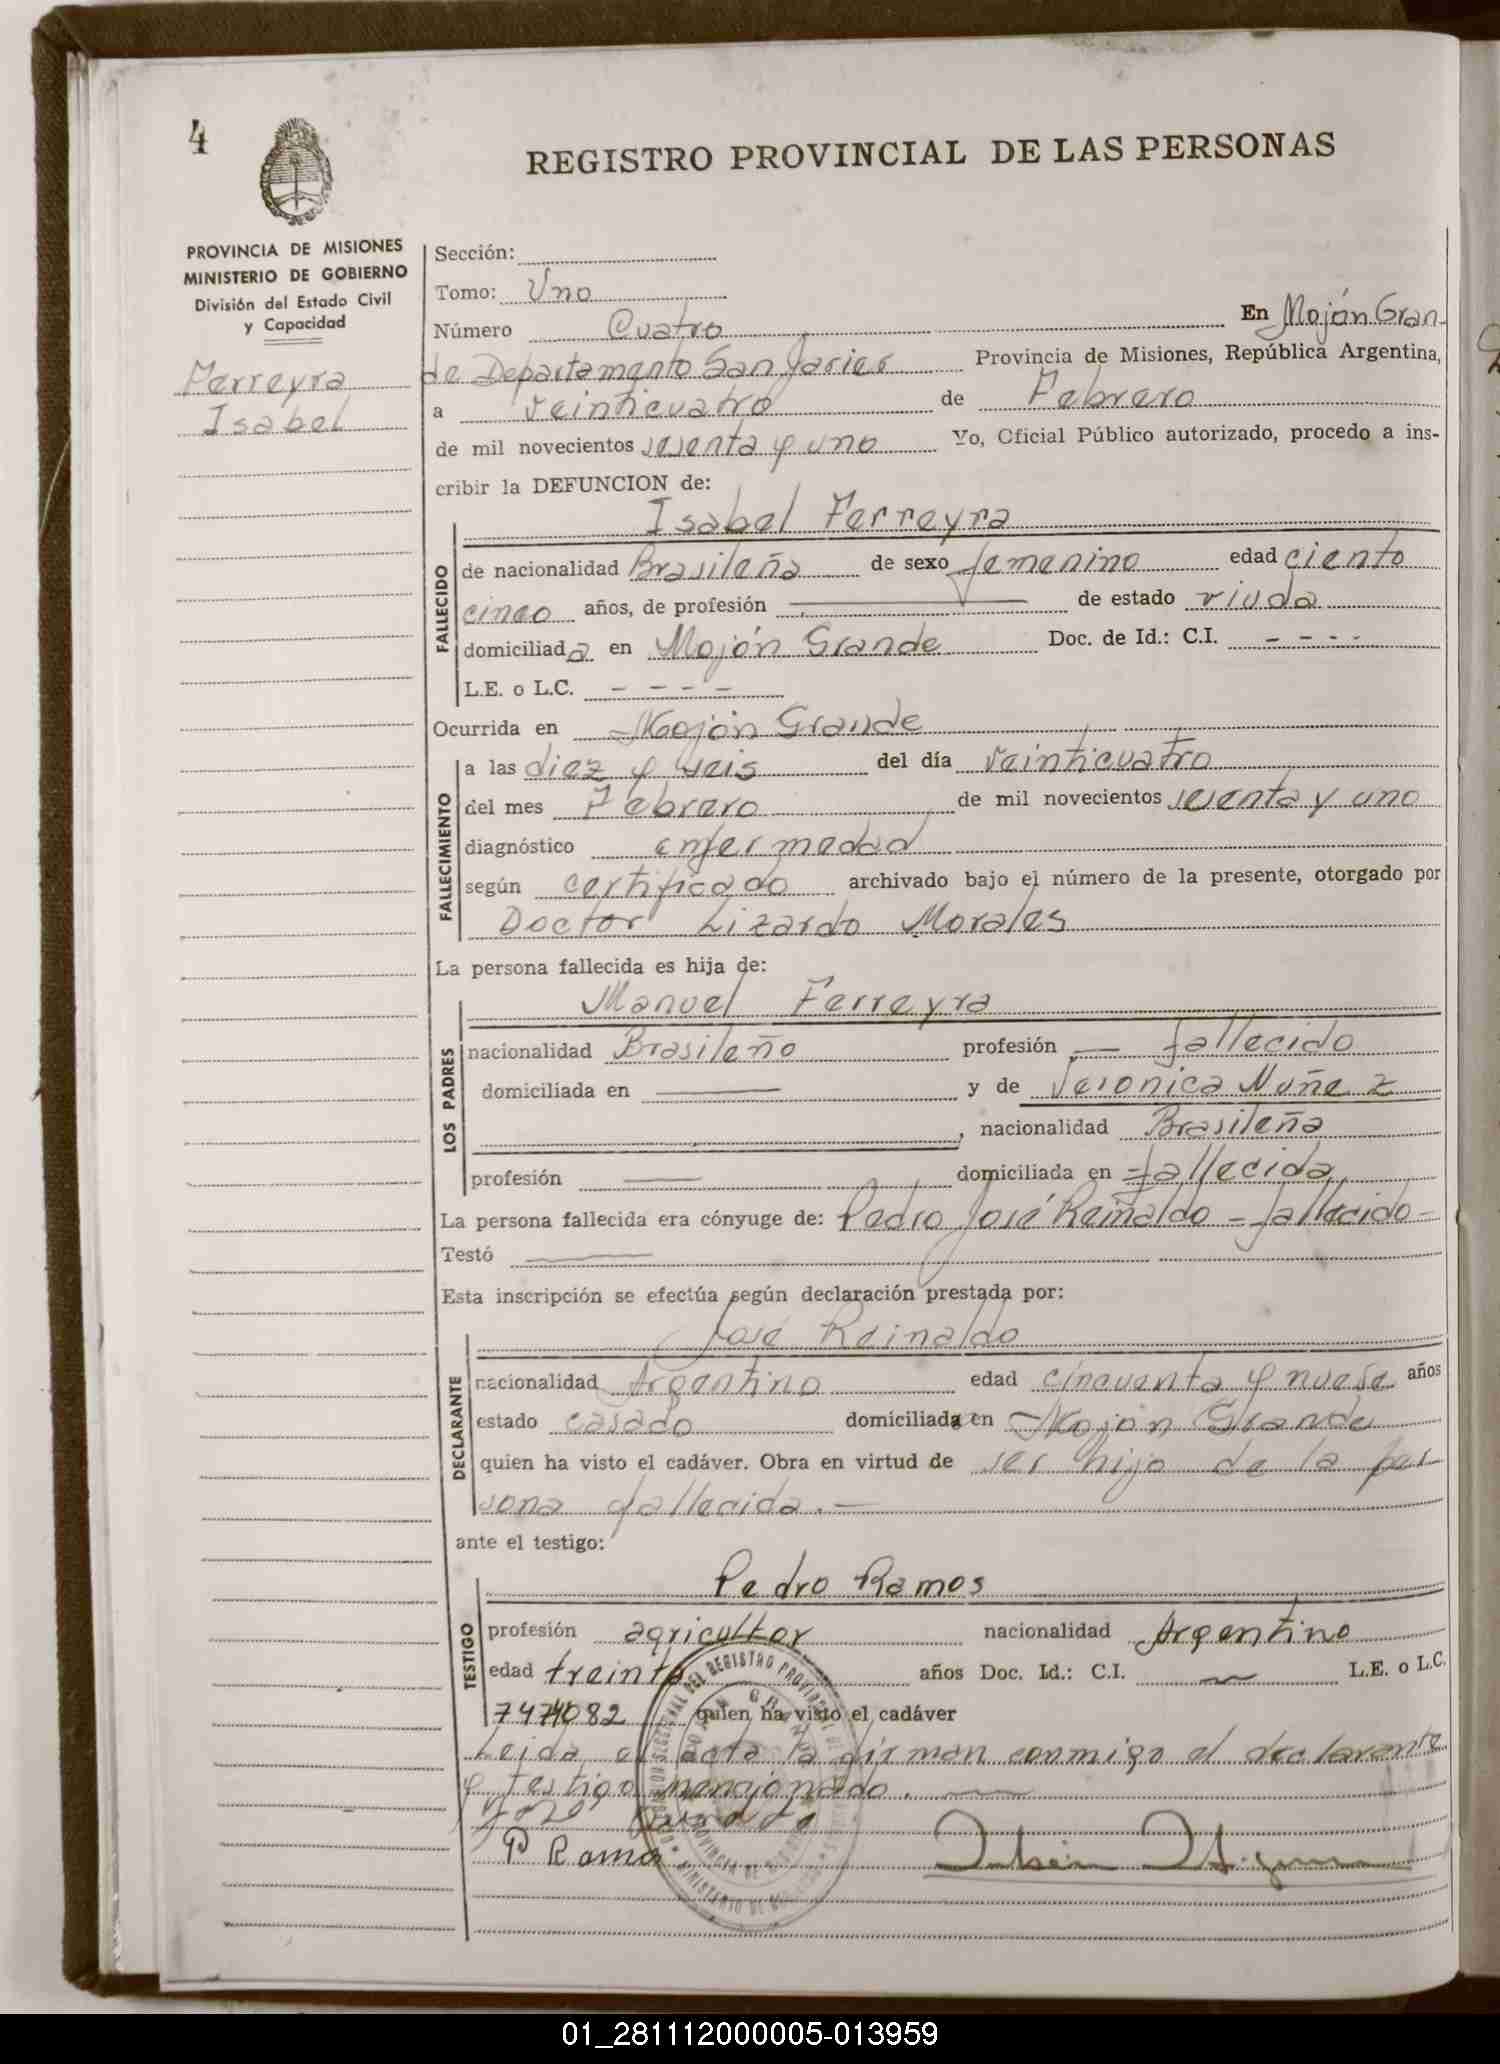 4
REGISTRO PROVINCIAL DE LAS PERSONAS
PROVINCIA DE MISIONES
MINISTERIO DE GOBIERNO
División del Estado Civil
y Capacidad
Ferreyra
Isabel
Sección:
Tomo: Uno
Número Cuatro En Mojón Gran-
de Departamento San Javier Provincia de Misiones, República Argentina,
a veinticuatro de Febrero
de mil novecientos sesenta y uno Yo, Oficial Público autorizado, procedo a ins-
cribir la DEFUNCION de:
Isabel Ferreyra
FALLECIDO
de nacionalidad Brasileña de sexo femenino edad ciento
cinco años, de profesión — de estado viuda
domiciliada en Mojón Grande Doc. de Id.: C.I. - - - -
L.E. o L.C. - - - -
Ocurrida en Mojón Grande
FALLECIMIENTO
a las diez y seis del día veinticuatro
del mes Febrero de mil novecientos sesenta y uno
diagnóstico enfermedad
según certificado archivado bajo el número de la presente, otorgado por
Doctor Lizardo Morales
La persona fallecida es hija de:
Manuel Ferreyra
LOS PADRES
nacionalidad Brasileño profesión — fallecido
domiciliada en — y de Veronica Nuñez
, nacionalidad Brasileña
profesión — domiciliada en - fallecida
La persona fallecida era cónyuge de: Pedro José Reinaldo - fallecido -
Testó —
Esta inscripción se efectúa según declaración prestada por:
José Reinaldo
DECLARANTE
nacionalidad Argentino edad cincuenta y nueve años
estado casado domiciliada en Mojón Grande
quien ha visto el cadáver. Obra en virtud de ser hijo de la per
sona fallecida. —
ante el testigo:
Pedro Ramos
TESTIGO
profesión agricultor nacionalidad Argentino
edad treinta años Doc. Id.: C.I. — L.E. o L.C.
quien ha visto el cadáver
Leida el acta la firman conmigo el declarante
y testigo mencionado. —
P Ramo
01_281112000005-013959